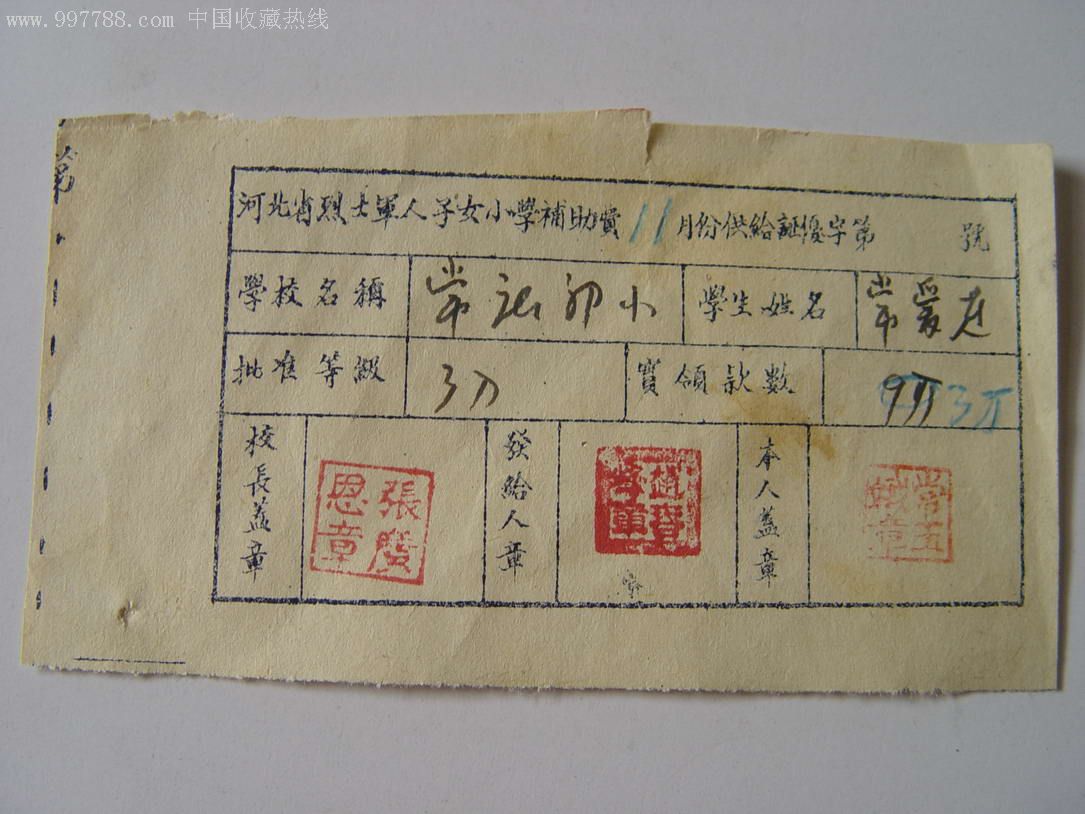 www.997788.com 中国收藏热线
第
河北省烈士軍人子女小學補助費11月份供給証優字第 號
學校名稱 常 小 學生姓名 常愛
批准等級 實領款數 3万
校長蓋章 張慶恩章 發給人章 趙 章 本人蓋章 常 章